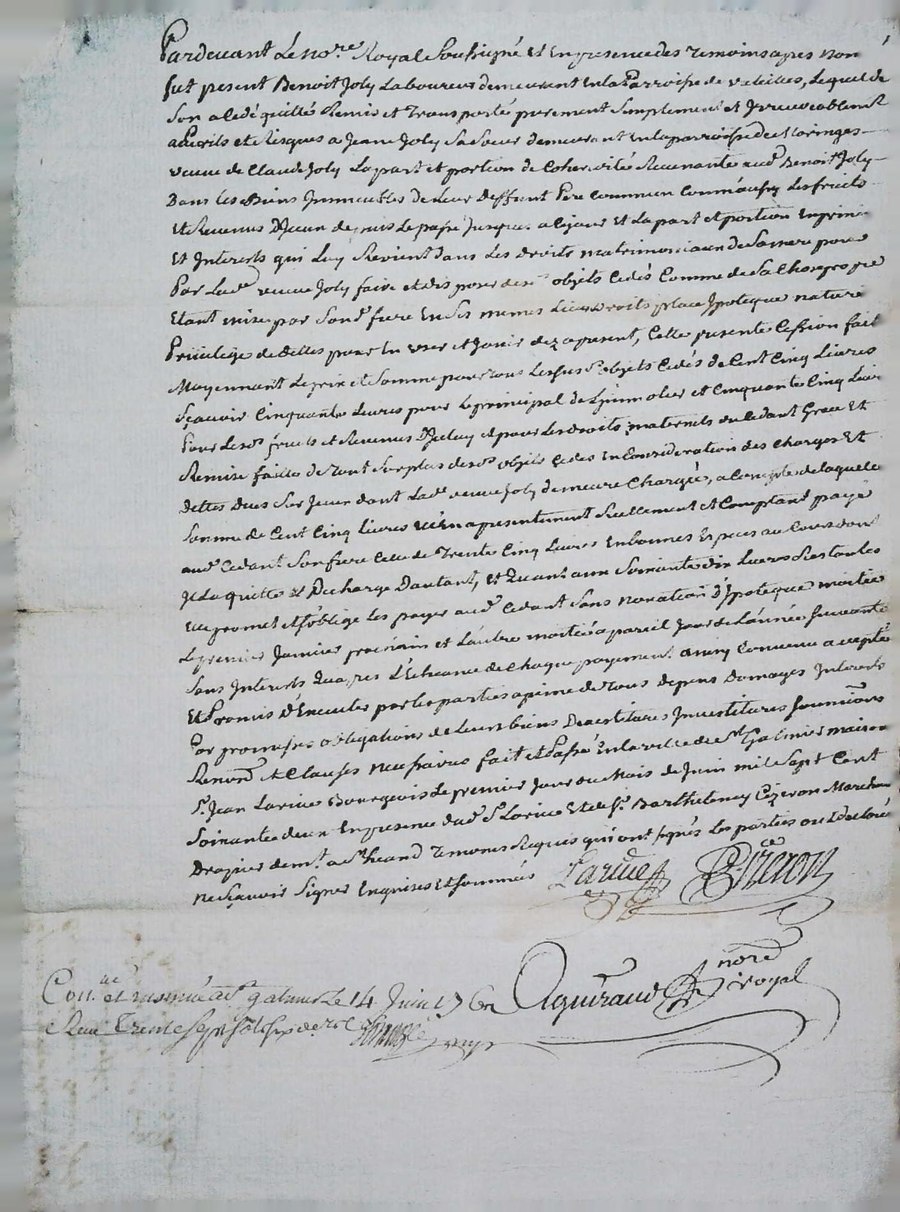 Pardevant Le nore Royal Soussigné et en presence des Temoins apres nom
fut present Benoit Joly Laboureur demeurant en la Parroisse de valeilles, Lequel de
son a cedé quitté Remis et Transporté purement Simplement et Jrrevocablement
a perils et Risques a Jeane Joly Sa Soeur demeurant en la parroisse de Maringes
veuve de Claude Joly La part et portion de Coheredité Revenante aud Benoit Joly
Dans les Biens Jmmeubles de Leur Deffunt Pere commun Comme aussy Les fruits
et Revenus D'Jceux depuis Le passé Jusques a ce jour et La part et portion en prin
et Jnterets qui Luy Revient dans Les droits matrimoniaux de Sa mere pour
Par Lade veuve Joly faire et dis poser desd objets cedés Comme de Sa Chose propre
Etant mise par Sond frere En Ses memes Lieu Droits place Jpoteque nature
Privilege dicelles pour En user et Jouir dez a present, Cette presente Cession fait
Moyennant Le prix et Somme pour tous Les sus d objets Cedés de Cent Cinq Livres
Sçavoir Cinquante Livres pour Le principal de L'jmmoble et Cinquante Cinq Livr
Pour Lesd fruits et Revenus D'Jceluy et pour Les Droits maternels dud cedant Grace Et
Remise faittes de Tout Surplus desd objets Cedés en Consideration des Charges Et
dettes Dues Sur Jceux dont Lade veuve Joly demeure Chargée, a Compte de Laquelle
Somme de Cent Cinq Livres a presentement Reellement et Comptant payé
aud Cedant Son frere Celle de Trente Cinq Livres En bonnes Especes au Cours dont
Jl La quitte & Decharge Dautant, et Quant aux Soixante dix Livres Restantes
promet et s'oblige Les payer aud Cedant Sans novation D'Jpoteque moitié
Le premier Janvier prochain et L'autre moitié a pareil Jour de L'année Suivante
Sans Jnterets Qua pres L'Echeance de Chaque payement ainsy Convenu accepté
Et Promis D'Executer par les parties a peine de Tous depens Domages Jnterets
Par promesses obligations de Leurs biens Devestitures Jnvestitures Soumissions
Renond et Clauses necessaires fait et Passé En La ville de St Galmier maison
Sr Jean Larive Bourgeois Le premier Jour du Mois de Juin mil Sept Cent
Soixante deux En presence dud Sr Larive Et de Sr Barthelemy Cizeron Marchan
Drapier demt a St heand Temoins Requis qui ont signés Les parties ont declaré
ne Sçavoir Signer Enquises et sommées Larive Cizeron
Aguiraud nore royal
Con.lé et insinué a St galmier Le 14 Juin 1762
Reçu Trente Sept